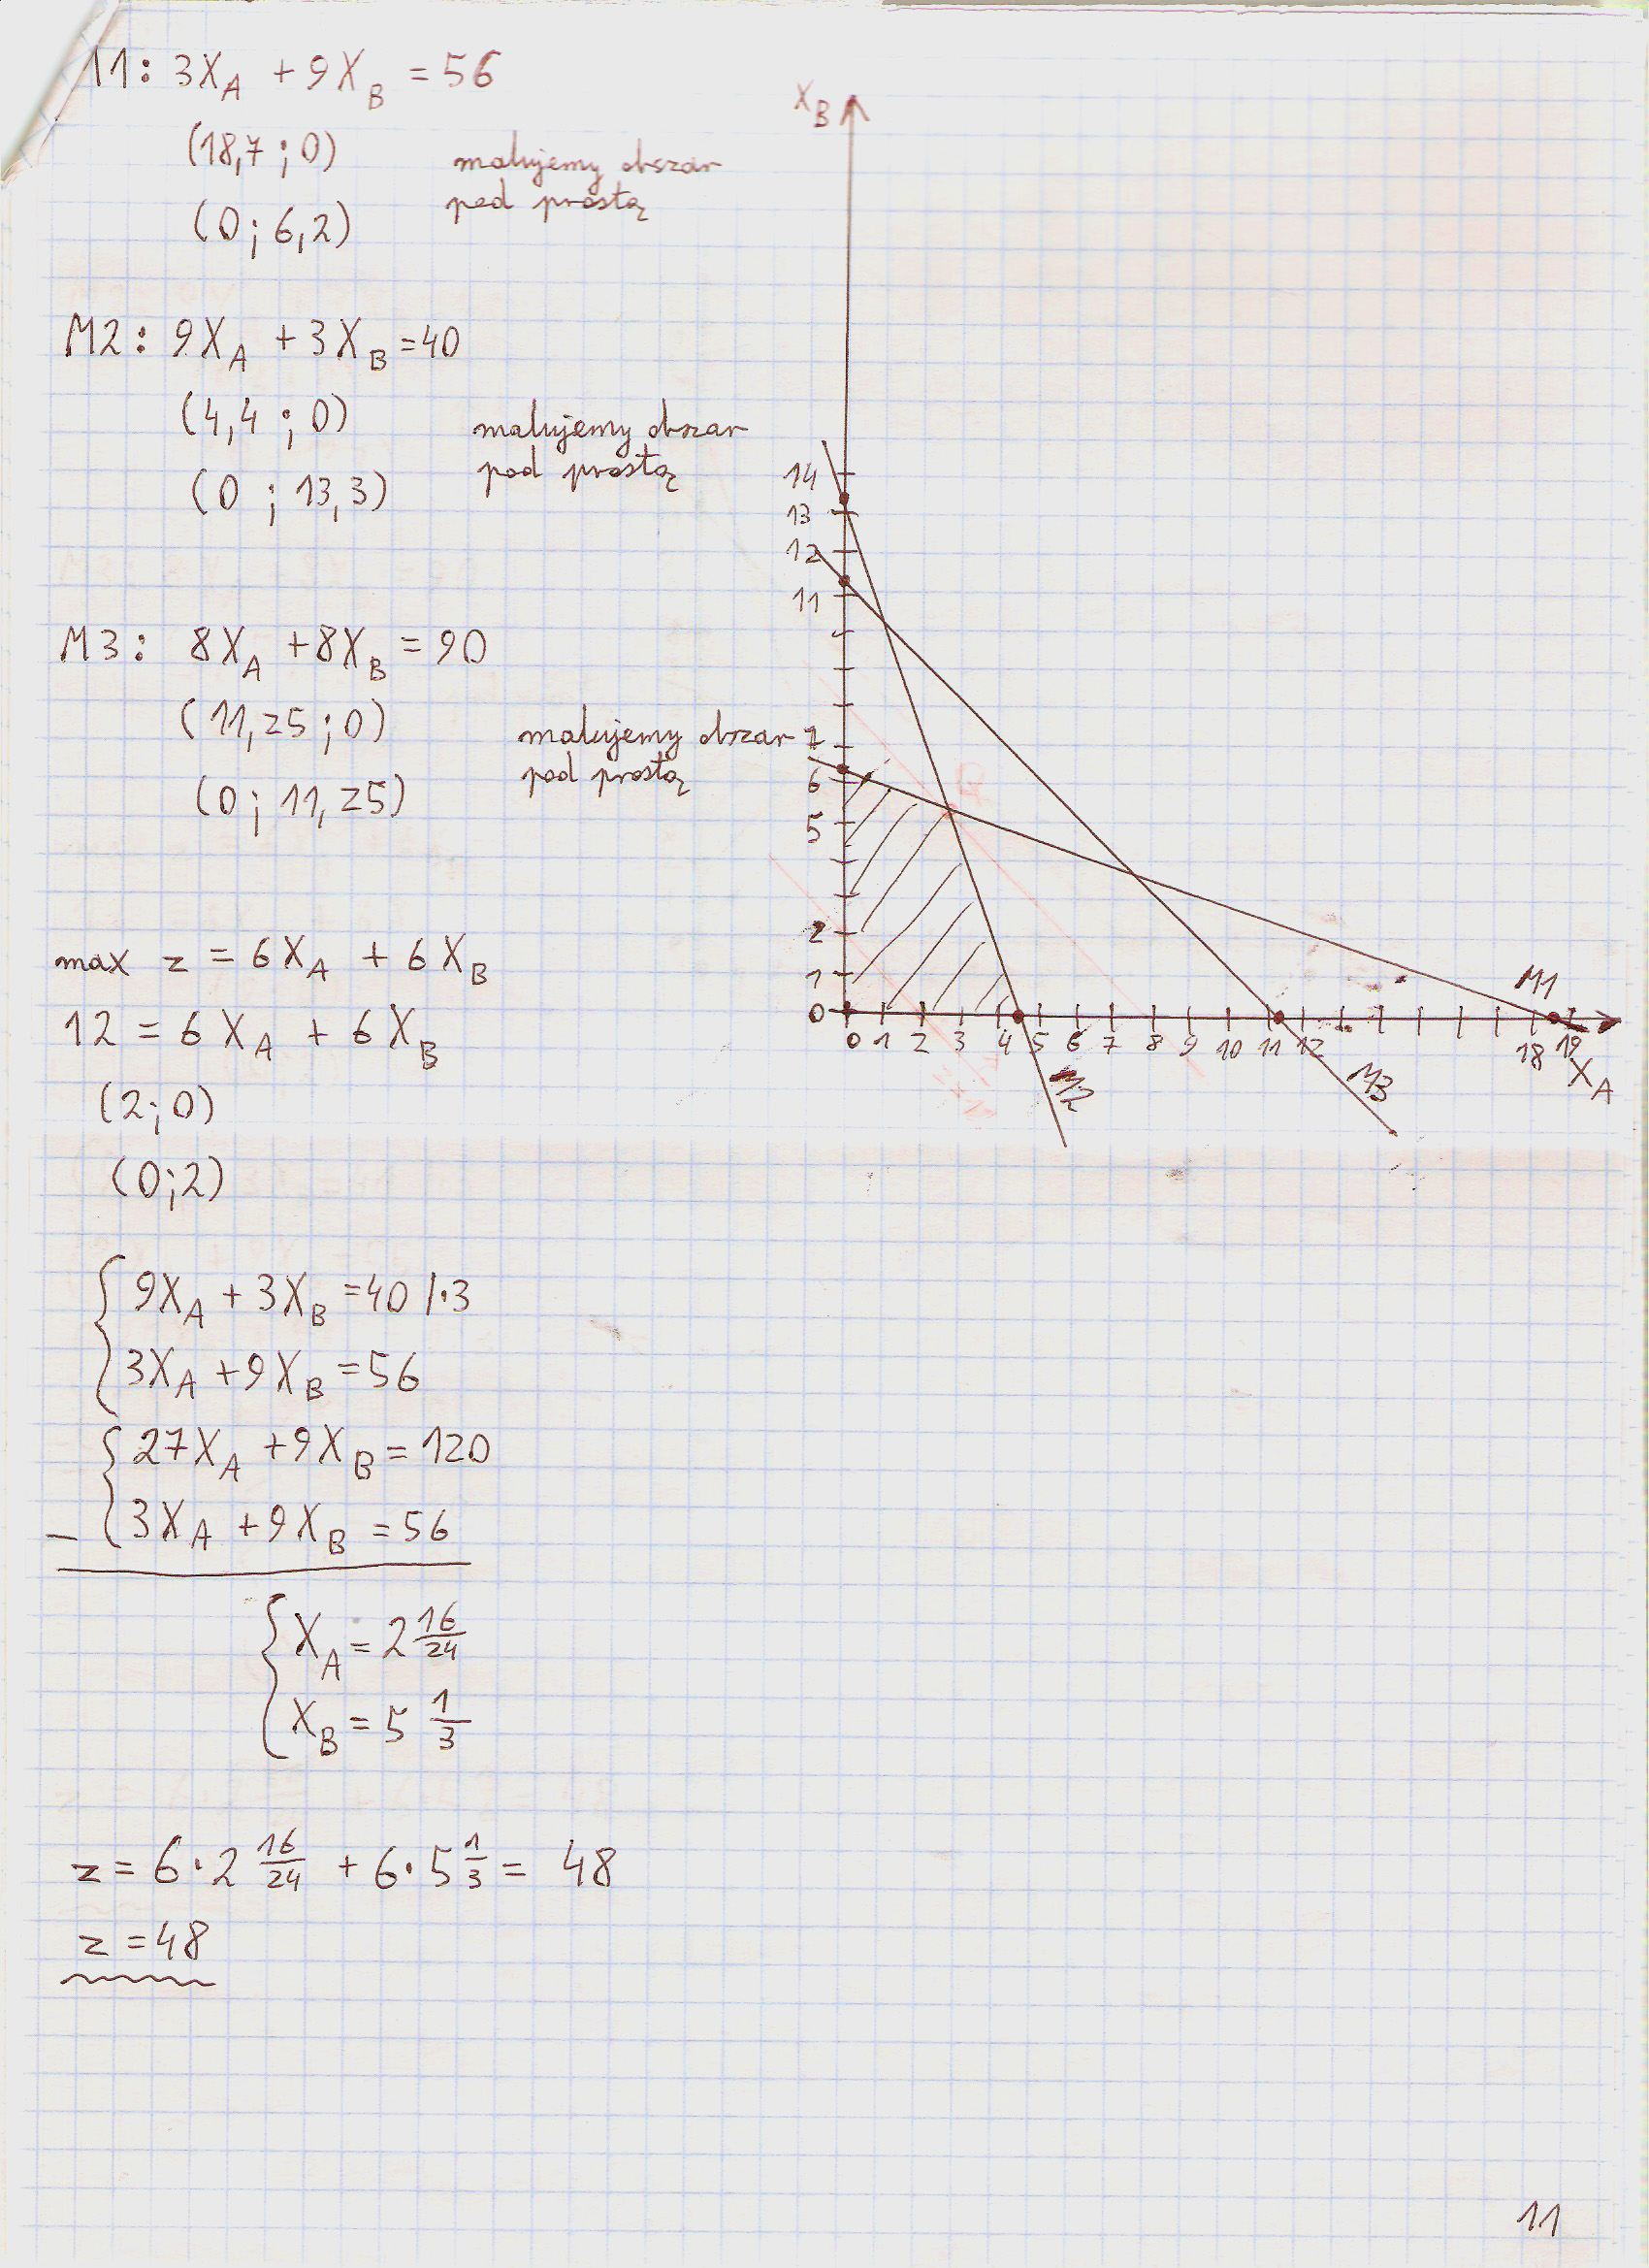 M1: 3X_A + 9X_B = 56
(18,7 ; 0)
(0 ; 6,2)
malujemy obszar
pod prostą
M2: 9X_A + 3X_B = 40
(4,4 ; 0)
(0 ; 13,3)
malujemy obszar
pod prostą
M3: 8X_A + 8X_B = 90
(11,25 ; 0)
(0 ; 11,25)
malujemy obszar
pod prostą
max z = 6X_A + 6X_B
12 = 6X_A + 6X_B
(2;0)
(0;2)
9X_A + 3X_B = 40 /·3
3X_A + 9X_B = 56
27X_A + 9X_B = 120
- 3X_A + 9X_B = 56
X_A = 2 16/24
X_B = 5 1/3
z = 6·2 16/24 + 6·5 1/3 = 48
z = 48
X_B
14
13
12
11
7
6
5
2
1
0
0 1 2 3 4 5 6 7 8 9 10 11 12 18 19
X_A
M1
M2
M3
11